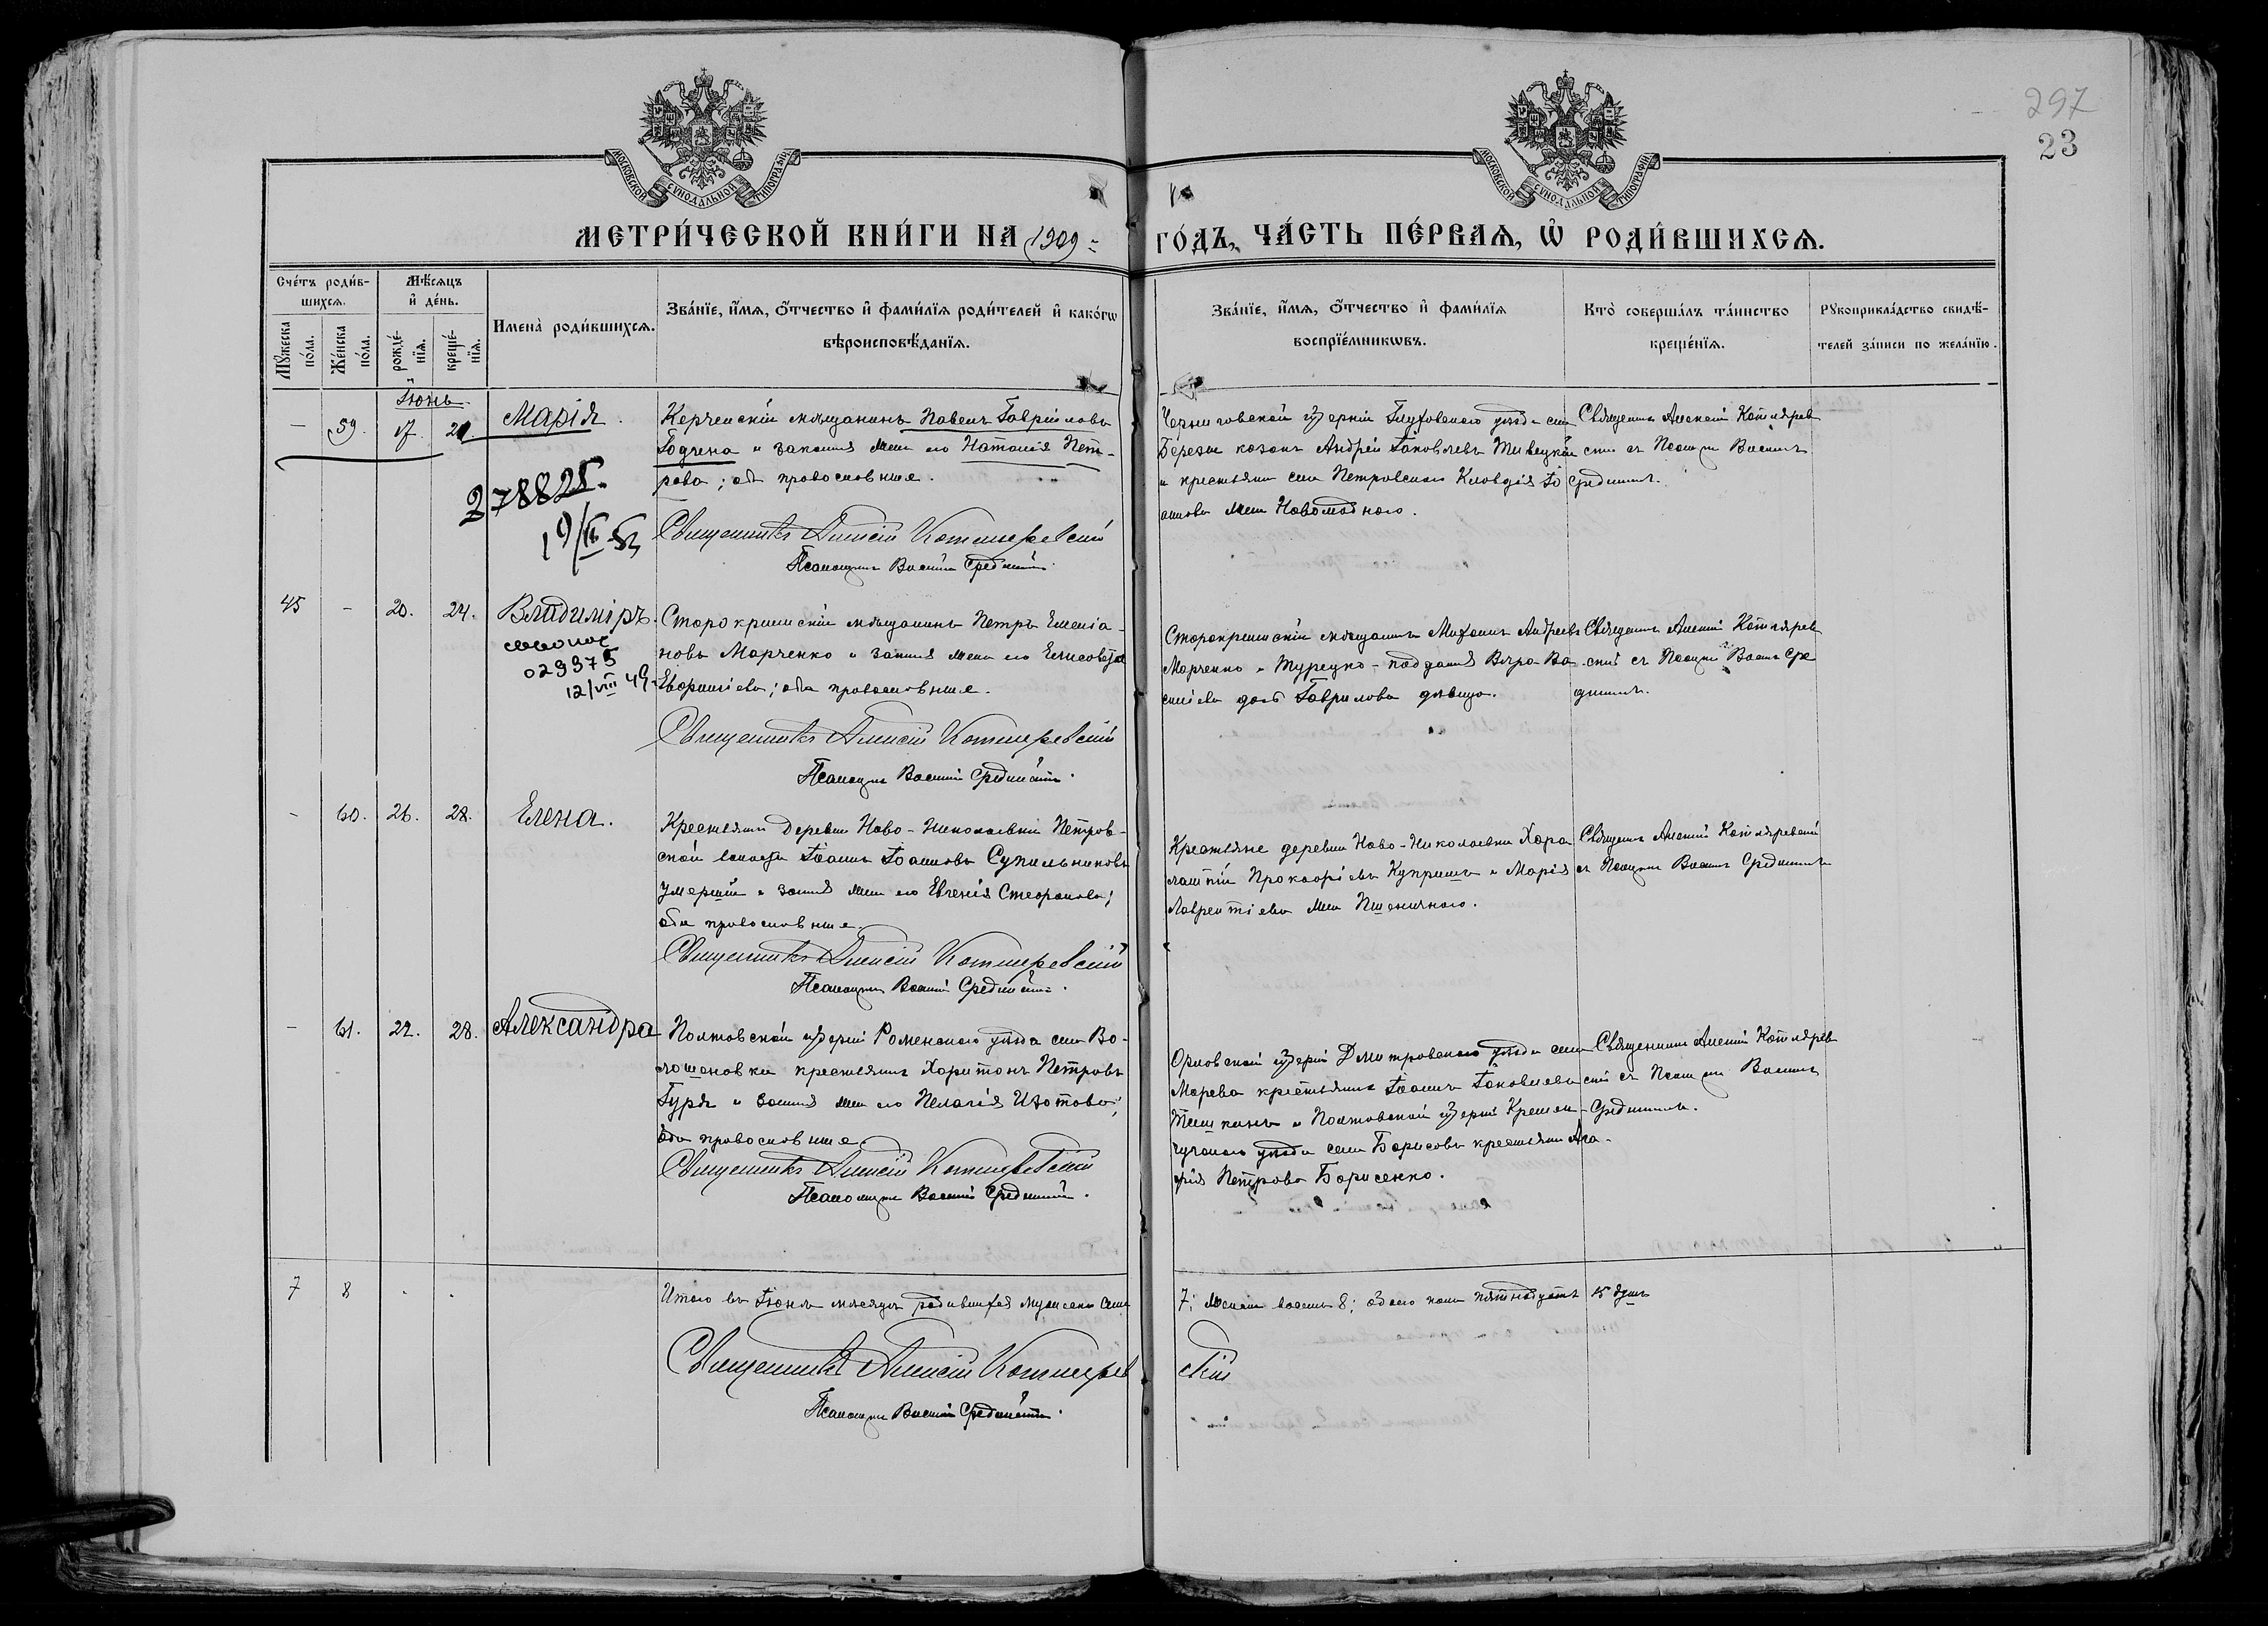 297
23
МОСКОВСКОЙ СѴНОДАЛЬНОЙ ТИПОГРАФІИ
МОСКОВСКОЙ СѴНОДАЛЬНОЙ ТИПОГРАФІИ
МЕТРИ́ЧЕСКОЙ КНИ́ГИ НА 1909 ГО́ДЪ, ЧА́СТЬ ПЕ́РВАѦ, Ѡ҆ РОДИ́ВШИХСѦ.
Сче́тъ роди́в-
шихсѧ.
Мѣ́сѧцъ
и҆ де́нь.
Мꙋ́жеска
по́ла.
Же́нска
по́ла.
рожде́-
нїѧ.
креще́-
нїѧ.
Имена̀ роди́вшихсѧ.
Зва́нїе, и҆́мѧ, ѻ҆́тчество и҆ фами́лїѧ роди́телей и҆ како́гѡ
вѣроисповѣ́данїѧ.
Зва́нїе, и҆́мѧ, ѻ҆́тчество и҆ фами́лїѧ
воспрїе́мникѡвъ.
Кто̀ соверша́лъ та́инство
креще́нїѧ.
Рꙋкоприкла́дство свидѣ́-
телей за́писи по жела́нїю.
Іюнь.
- 59. 17. 21. Марія.
Керченскій мѣщанинъ Павелъ Гавріиловъ
Годуена и законная жена его Наталія Пет-
рова; оба православные.
Священникъ Алексій Котляревскій
Псаломщикъ Василій Срединскій.
278825.
19/II 53
Черниговской губерніи Глуховскаго уѣзда села
Березы козакъ Андрей Іаковлевъ
и крестьянина села Петровскаго Клавдія Іо
аннова жена Новомоднаго.
Священникъ Алексій Котлярев
скій съ Псаломщ Василіемъ
Срединскимъ.
45 - 20. 24. Владиміръ.
029375
12/VIII 49.
Старокрымскій мѣщанинъ Петръ Емеліа-
новъ Марченко и законная жена его Елисавета
оба православные.
Священникъ Алексій Котляревскій
Псаломщикъ Василій Срединскій.
Старокрымскій мѣщанинъ Михаилъ Андреевъ
Марченко и Турецко-подданная Вѣра Ва
силіева дочь Гаврилова дѣвица.
Священникъ Алексій Котлярев
скій съ Псаломщ Василіемъ Сре
динскимъ.
- 60. 26. 28. Елена.
Крестьянинъ деревни Ново-Николаевки Петров-
ской волости Іоаннъ Іоанновъ Супильниковъ
умершій и законная жена его Евгенія Стефанова;
оба православные.
Священникъ Алексій Котляревскій
Псаломщикъ Василій Срединскій.
Крестьяне деревни Ново-Николаевки Хара
лампій Прокофіевъ Купришъ и Марія
Лаврентіева жена Пшеничнаго.
Священникъ Алексій Котляревскій
съ Псаломщ Василіемъ Срединскимъ
- 61. 22. 28. Александра
Полтавской губерніи Роменскаго уѣзда села Во-
лошановки крестьянинъ Харитонъ Петровъ
Гуря и законная жена его Пелагія Изотова;
оба православные.
Священникъ Алексій Котляревскій
Псаломщикъ Василій Срединскій.
Орловской губерніи Дмитровскаго уѣзда села
Морева крестьянинъ Іоаннъ Іаковлевъ
и Полтавской губерніи Кремен-
чугскаго уѣзда села Борисовъ крестьянка Ага-
фія Петрова Борисенко.
Священникъ Алексій Котлярев
скій съ Псаломщ Василіемъ
Срединскимъ.
7 8 . .
Итого въ Іюнѣ мѣсяцѣ родившихся мужескаго семь 7; женскаго восемь 8; обоего пола пятнадцать 15 душъ
Священникъ Алексій Котляревскій
Псаломщикъ Василій Срединскій.